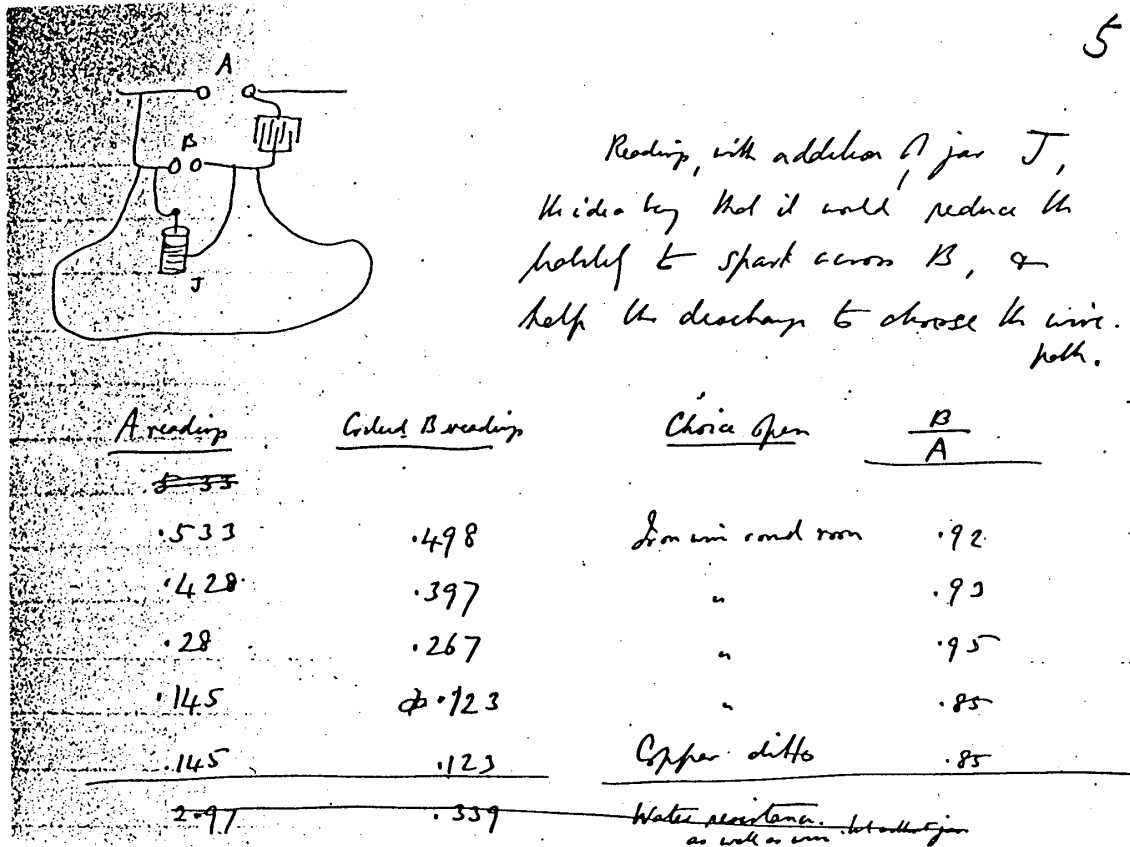 5
A
B
J
Readings, with addition of jar J,
the idea being that it would reduce the
liability to spark across B, &
help the discharge to choose the wire
path.
A readings Critical B readings Choice open B/A
5 33
.533 .498 Iron wire round room .92
.428 .397 " .93
.28 .267 " .95
.145 .123 " .85
.145 .123 Copper ditto .85
2.97 .339 Water resistance.
as well as wire but without jar